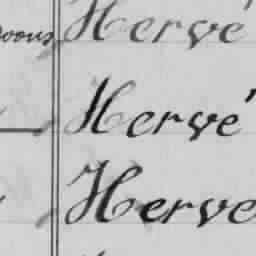 Hervé
Hervé
Herve